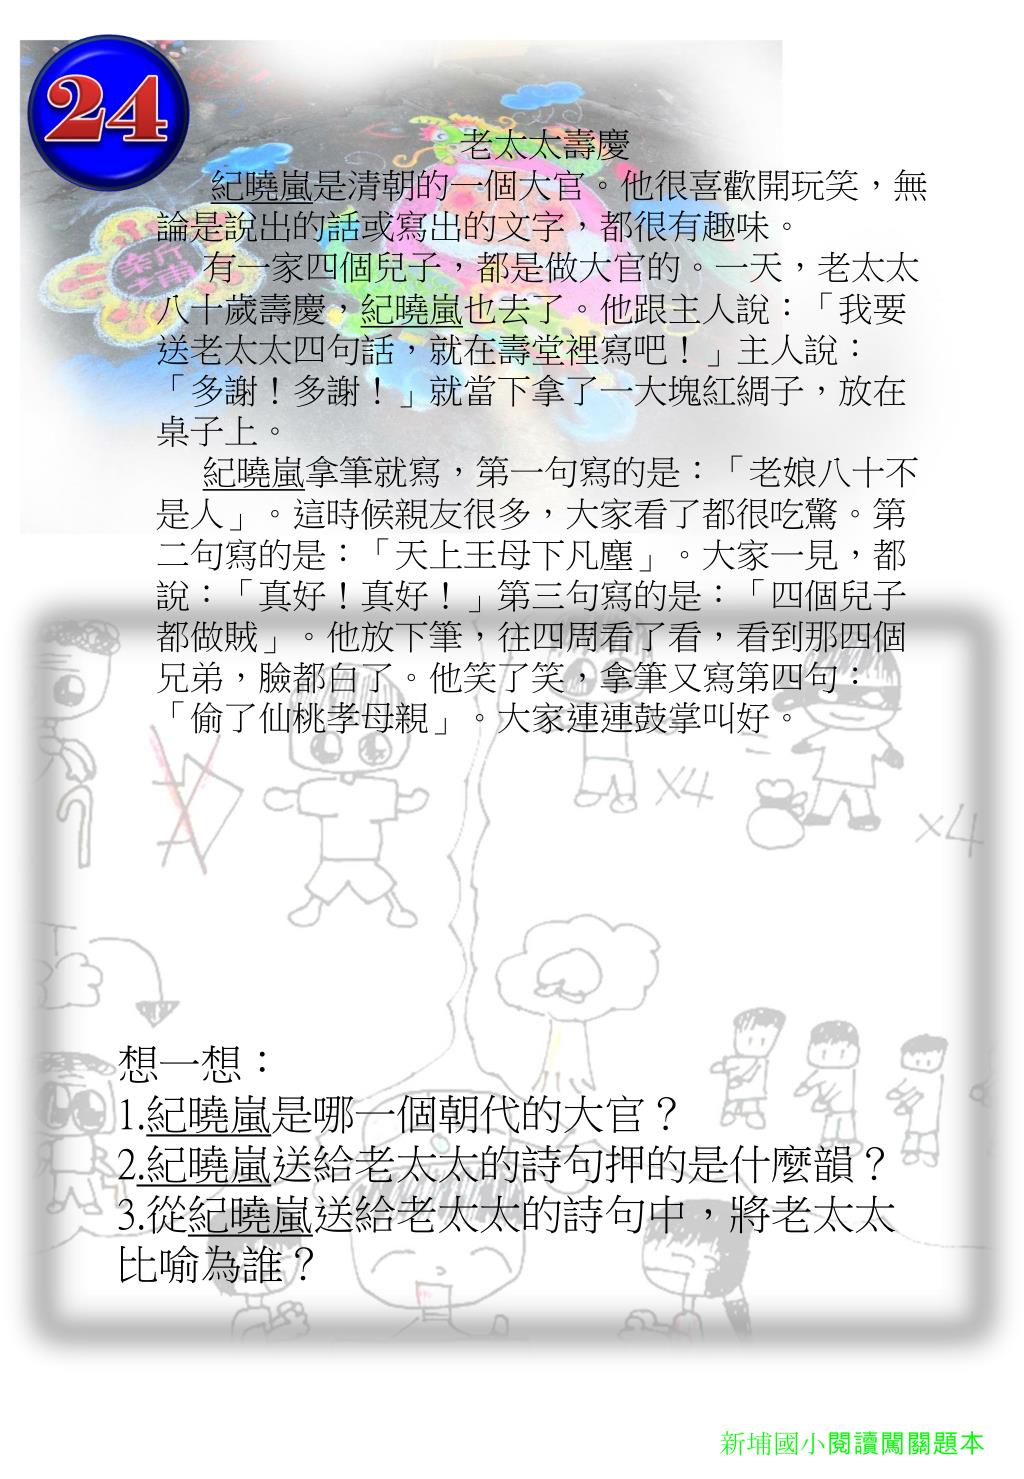 24
老太太壽慶
紀曉嵐是清朝的一個大官。他很喜歡開玩笑，無
論是說出的話或寫出的文字，都很有趣味。
有一家四個兒子，都是做大官的。一天，老太太
八十歲壽慶，紀曉嵐也去了。他跟主人說：「我要
送老太太四句話，就在壽堂裡寫吧！」主人說：
「多謝！多謝！」就當下拿了一大塊紅綢子，放在
桌子上。
紀曉嵐拿筆就寫，第一句寫的是：「老娘八十不
是人」。這時候親友很多，大家看了都很吃驚。第
二句寫的是：「天上王母下凡塵」。大家一見，都
說：「真好！真好！」第三句寫的是：「四個兒子
都做賊」。他放下筆，往四周看了看，看到那四個
兄弟，臉都白了。他笑了笑，拿筆又寫第四句：
「偷了仙桃孝母親」。大家連連鼓掌叫好。
新埔
X4
x4
想一想：
1.紀曉嵐是哪一個朝代的大官？
2.紀曉嵐送給老太太的詩句押的是什麼韻？
3.從紀曉嵐送給老太太的詩句中，將老太太
比喻為誰？
新埔國小閱讀闖關題本